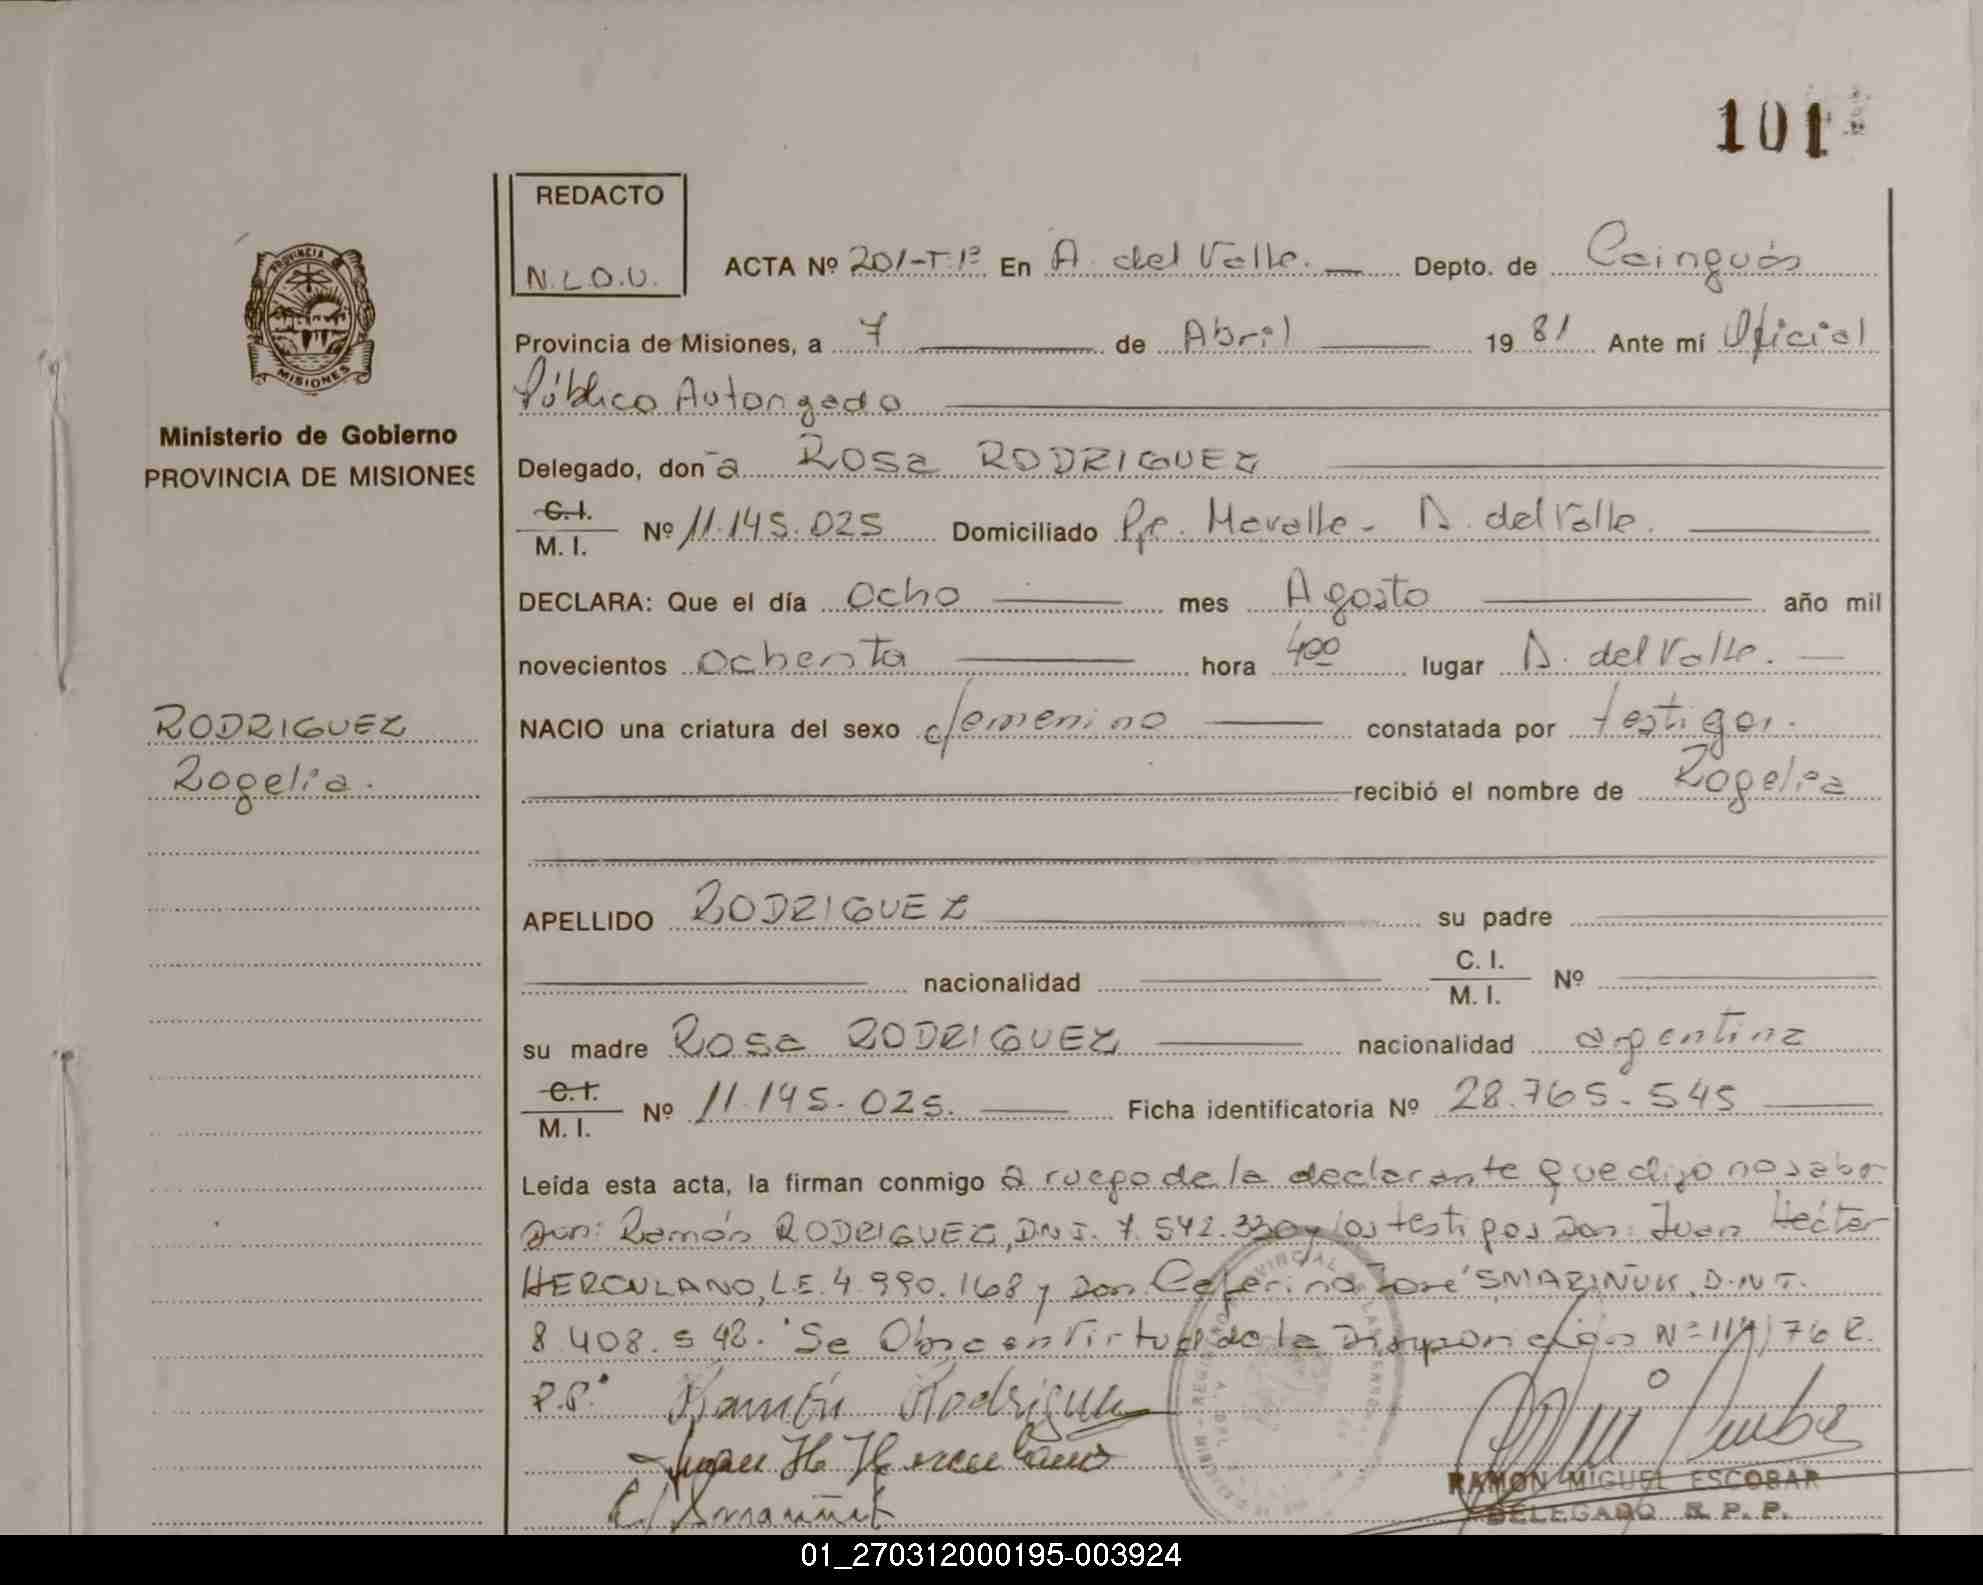 101
REDACTO
N.L.O.U.
PROVINCIA
MISIONES
Ministerio de Gobierno
PROVINCIA DE MISIONES
ACTA Nº 201-T.1º En A. del Valle. Depto. de Cainguás
Provincia de Misiones, a 7 de Abril 1981 Ante mí Oficial
Público Autorgado
Delegado, don ̃a Rosa RODRIGUEZ
C.I. / M.I. Nº 11.145.025 Domiciliado Pje. Mavalle - A. del Valle.
DECLARA: Que el día ocho mes Agosto año mil
novecientos ochenta hora 400 lugar A. del Valle.
NACIO una criatura del sexo femenino constatada por testigos.
recibió el nombre de Rogelia
RODRIGUEZ
Rogelia.
APELLIDO RODRIGUEZ su padre
nacionalidad C.I. / M.I. Nº
su madre Rosa RODRIGUEZ nacionalidad argentina
C.I. / M.I. Nº 11.145.025. Ficha identificatoria Nº 28.765.545
Leída esta acta, la firman conmigo a ruego de la declarante que dijo no saber
Don: Ramón RODRIGUEZ, DNI. 7.542.330 y los testigos Don: Juan Hécter
HERCULANO, L.E. 4.990.168 y Don Ceferino José SMARIÑUK, D.N.I.
8.408.542. Se Obsc en Virtud de la Disposición Nº 114/76 R.
P.P. Ramón Rodriguez
Juan H Herculano
RAMON MIGUEL ESCOBAR
DELEGADO R.P.P.
01_270312000195-003924